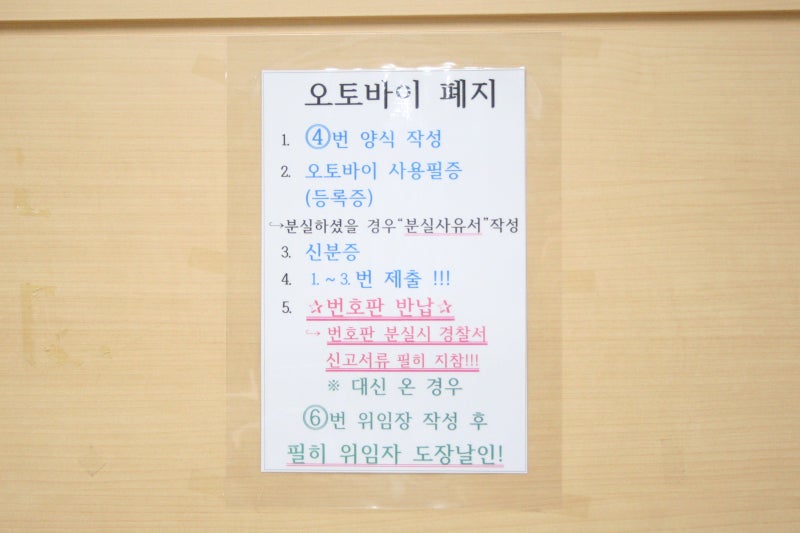 오토바이 폐지
1. ④번 양식 작성
2. 오토바이 사용필증
(등록증)
↪분실하셨을 경우"분실사유서"작성
3. 신분증
4. 1.~3.번 제출 !!!
5. ✰번호판 반납✰
↪ 번호판 분실시 경찰서
신고서류 필히 지참!!!
※ 대신 온 경우
⑥번 위임장 작성 후
필히 위임자 도장날인!